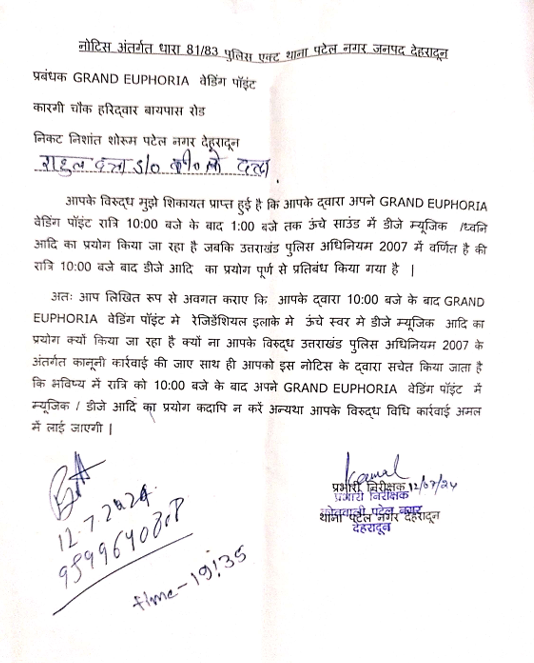 नोटिस अंतर्गत धारा 81/83 पुलिस एक्ट थाना पटेल नगर जनपद देहरादून
प्रबंधक GRAND EUPHORIA वेडिंग पॉइंट
कारगी चौक हरिद्वार बायपास रोड
निकट निशांत शोरूम पटेल नगर देहरादून
राहुल दत्ता S/O दत्ता
आपके विरुद्ध मुझे शिकायत प्राप्त हुई है कि आपके द्वारा अपने GRAND EUPHORIA
वेडिंग पॉइंट रात्रि 10:00 बजे के बाद 1:00 बजे तक ऊंचे साउंड में डीजे म्यूजिक /ध्वनि
आदि का प्रयोग किया जा रहा है जबकि उत्तराखंड पुलिस अधिनियम 2007 में वर्णित है की
रात्रि 10:00 बजे बाद डीजे आदि का प्रयोग पूर्ण से प्रतिबंध किया गया है |
अतः आप लिखित रूप से अवगत कराए कि आपके द्वारा 10:00 बजे के बाद GRAND
EUPHORIA वेडिंग पॉइंट मे रेजिडेंशियल इलाके मे ऊंचे स्वर मे डीजे म्यूजिक आदि का
प्रयोग क्यों किया जा रहा है क्यों ना आपके विरुद्ध उत्तराखंड पुलिस अधिनियम 2007 के
अंतर्गत कानूनी कार्रवाई की जाए साथ ही आपको इस नोटिस के द्वारा सचेत किया जाता है
कि भविष्य में रात्रि को 10:00 बजे के बाद अपने GRAND EUPHORIA वेडिंग पॉइंट में
म्यूजिक / डीजे आदि का प्रयोग कदापि न करें अन्यथा आपके विरुद्ध विधि कार्रवाई अमल
में लाई जाएगी |
Kamal
प्रभारी निरीक्षक 12/07/24
प्रभारी निरीक्षक
कोतवाली पटेल नगर
थाना पटेल नगर देहरादून
देहरादून
12.7.2024
time-19:35